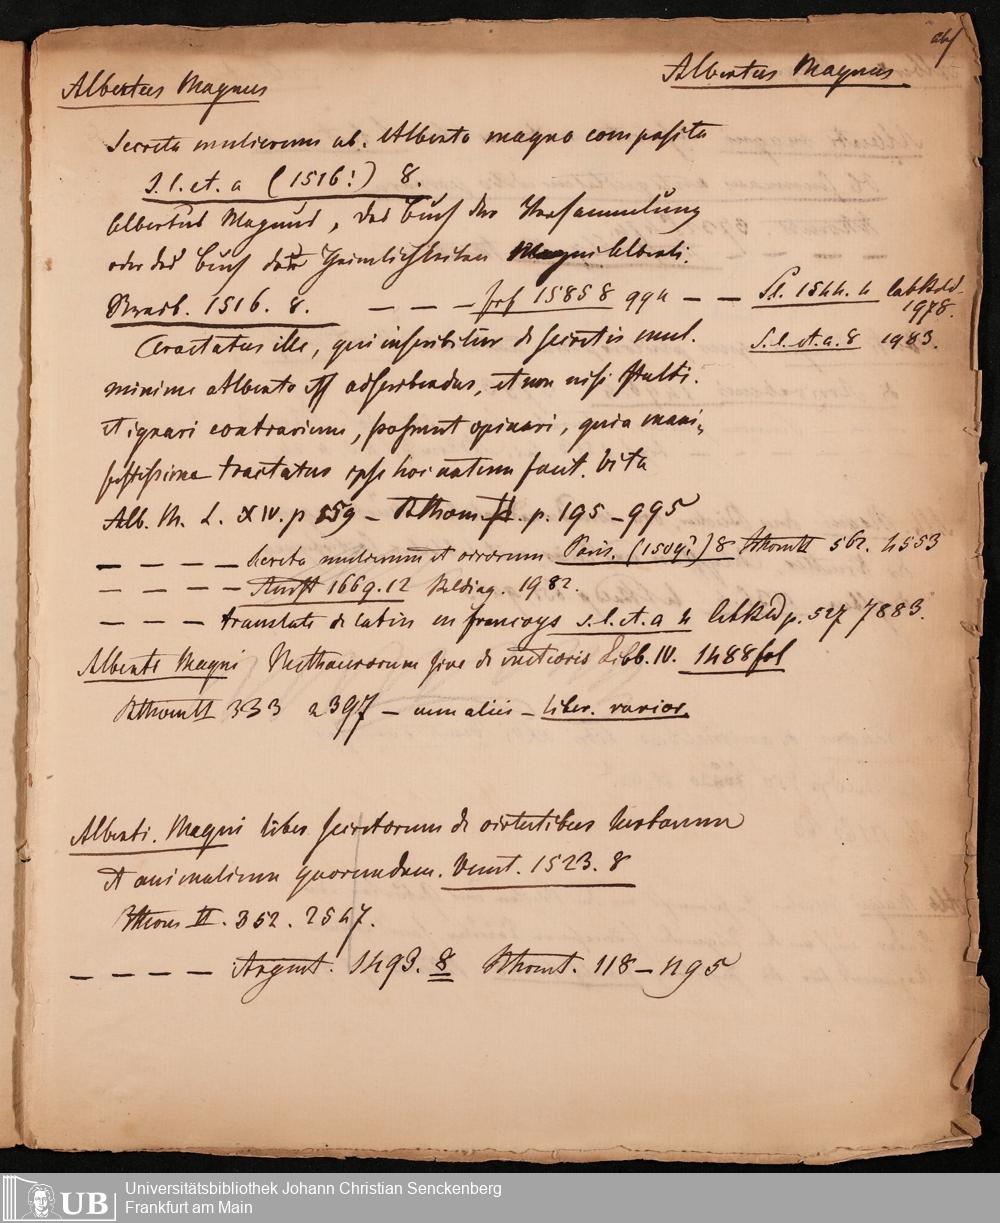 Albertus Magnus
Albertus Magnus
Secreta mulierum ab. Alberto magno composita
S. l. et. a (1516!) 8.
Albertus Magnus, das Buch der Versammlung
oder das Buch der Heimlichkeiten Magni Alberti.
1516. 8. — — — 15858 994 — — S. l. 1544. 4
1978.
Tractatus ille, qui inscribitur de secretis mul.
S. l. et. a. 8 1983.
minime Alberto est adscribendus, et non nisi stulti
et ignari contrarium, possunt opinari, quia mani-
festissime tractatus ipse hoc natum facit. Vita
Alb. M. L. XIV. p 859 — p. 195 — 995
— — — — Secreta mulierum et virorum Paris. (1509?) 8 562. 4553
— — — — 1669. 12 1982.
— — — translate de latin en francoys s. l. et. a 4 p. 527 7883.
Alberti Magni Methaurorum sive de meteoris Libb. IV. 1488 fol
333 2397 — cum aliis — liber. varior.
Alberti. Magni liber secretorum de virtutibus herbarum
et animalium quorumdam. Venet. 1523. 8
352. 2547.
— — — — Argent. 1493. 8 118 — 495
UB
Universitätsbibliothek Johann Christian Senckenberg
Frankfurt am Main